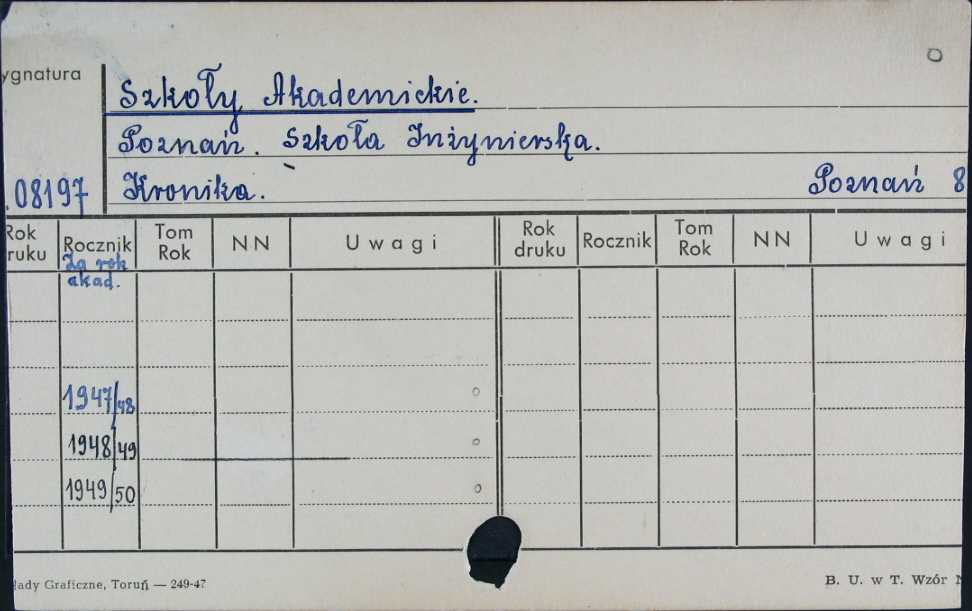 ygnatura
Szkoły Akademickie.
Poznań. Szkoła Inżynierska.
.08197 Kronika. Poznań 8
Rok druku Rocznik Tom Rok NN Uwagi Rok druku Rocznik Tom Rok NN Uwagi
Za rok
akad.
1947/48
1948/49
1949/50
łady Graficzne, Toruń — 249-47 B. U. w T. Wzór N